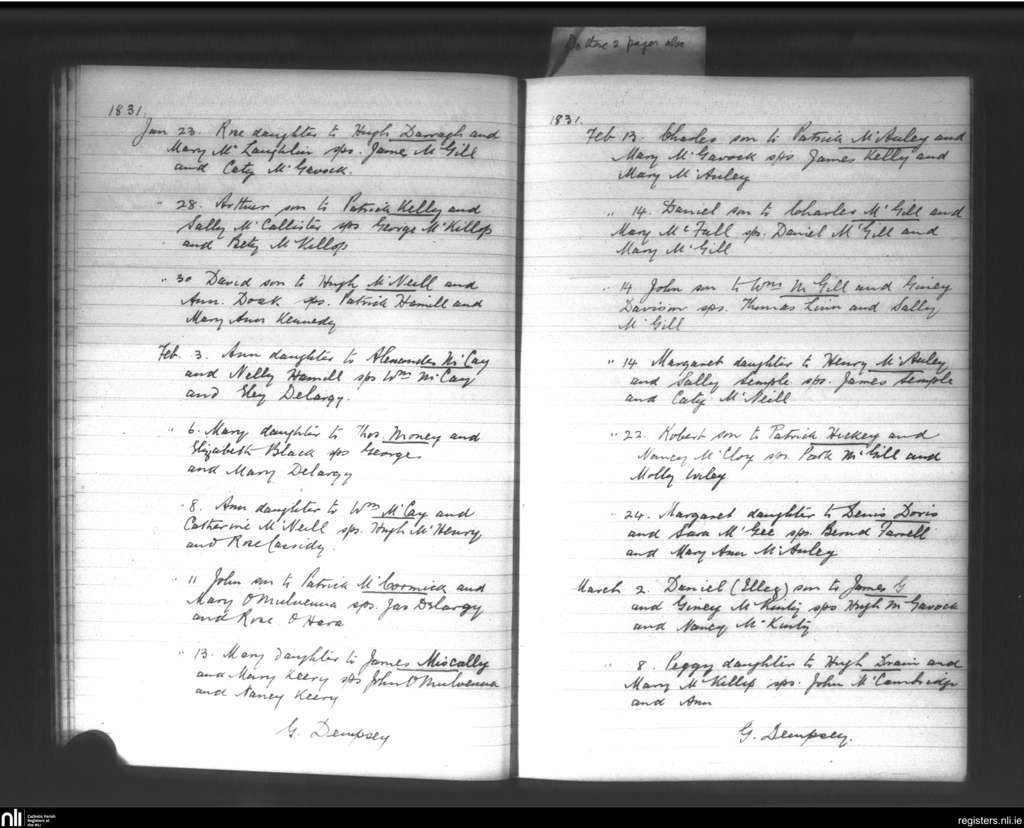 Do these 2 pages also
1831.
Jan 23. Rose daughter to Hugh Darragh and
Mary McLaughlin sps. James McGill
and Caty McGavock.
" 28. Arthur son to Patrick Kelly and
Sally McCallister sps George McKillop
and Bety McKillop
" 30 David son to Hugh McNeill and
Ann. Doak sps. Patrick Hamill and
Mary Ann Kennedy
Feb. 3. Ann daughter to Alexander McCay
and Nelly Hamill sps Wm McCay
and Eley Delargy.
" 6. Mary daughter to Thos. Money and
Elizabeth Black sps George
and Mary Delargy
" 8. Ann daughter to Wm McCay and
Catherine McNeill sps. Hugh McHenry
and Rose Cassidy.
" 11 John son to Patrick McCormick and
Mary O'Mulvenna sps. Jas Delargy
and Rose O'Hara
" 13. Mary daughter to James Miscally
and Mary Keery sps John O'Mulvenna
and Nancy Keery
G. Dempsey
1831.
Feb 13. Charles son to Patrick McAuley and
Mary McGavock sps James Kelly and
Mary McAuley
" 14. Daniel son to Charles McGill and
Mary McFall sps. Daniel McGill and
Mary McGill
" 14 John son to Wm McGill and Giney
Davison sps. Thomas Linn and Sally
McGill
" 14 Margaret daughter to Henry McAuley
and Sally Semple sps. James Semple
and Caty McNeill
" 22. Robert son to Patrick Hickey and
Nancy McCloy sps Patk McGill and
Molly Wiley
" 24. Margaret daughter to Denis Doris
and Sara McGee sps. Bernd Farrell
and Mary Ann McAuley
March 2. Daniel (Illeg) son to James G
and Giney McKinty sps Hugh McGavock
and Nancy McKinty
" 8. Peggy daughter to Hugh Drain and
Mary McKillop sps. John McCambridge
and Ann
G. Dempsey.
nli
Catholic Parish
Registers at
the NLI
registers.nli.ie